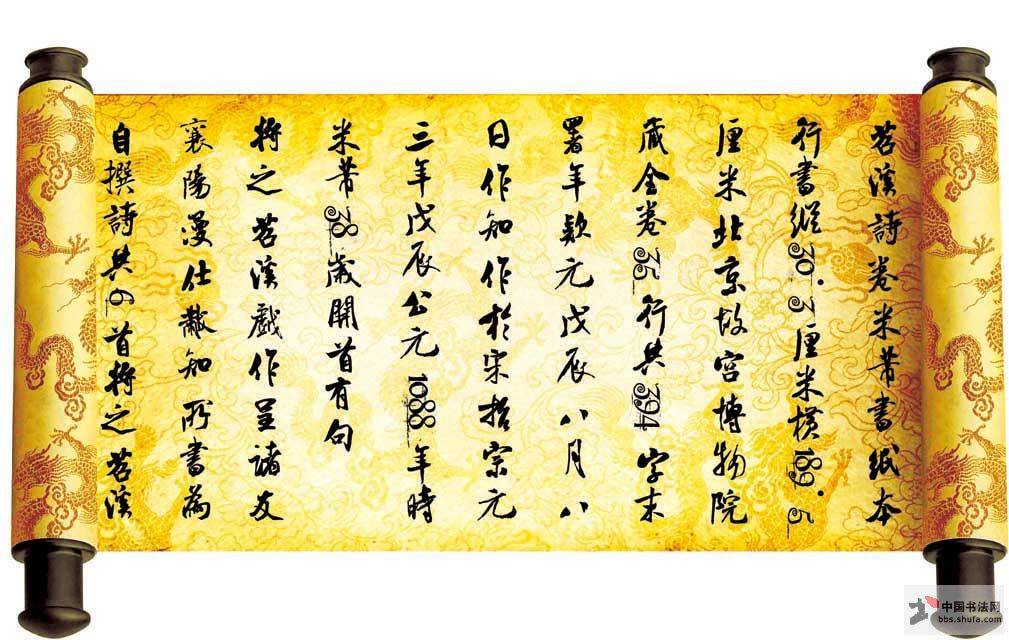 苕溪詩卷米芾書紙本
行書縱30.3厘米橫189.5
厘米北京故宮博物院
藏全卷35行共394字末
署年款元戊辰八月八
日作知作於宋哲宗元
三年戊辰公元1088年時
米芾38歲開首有句
將之苕溪戲作呈諸友
襄陽漫仕黻知所書為
自撰詩共6首將之苕溪
中国书法网
bbs.shufa.com